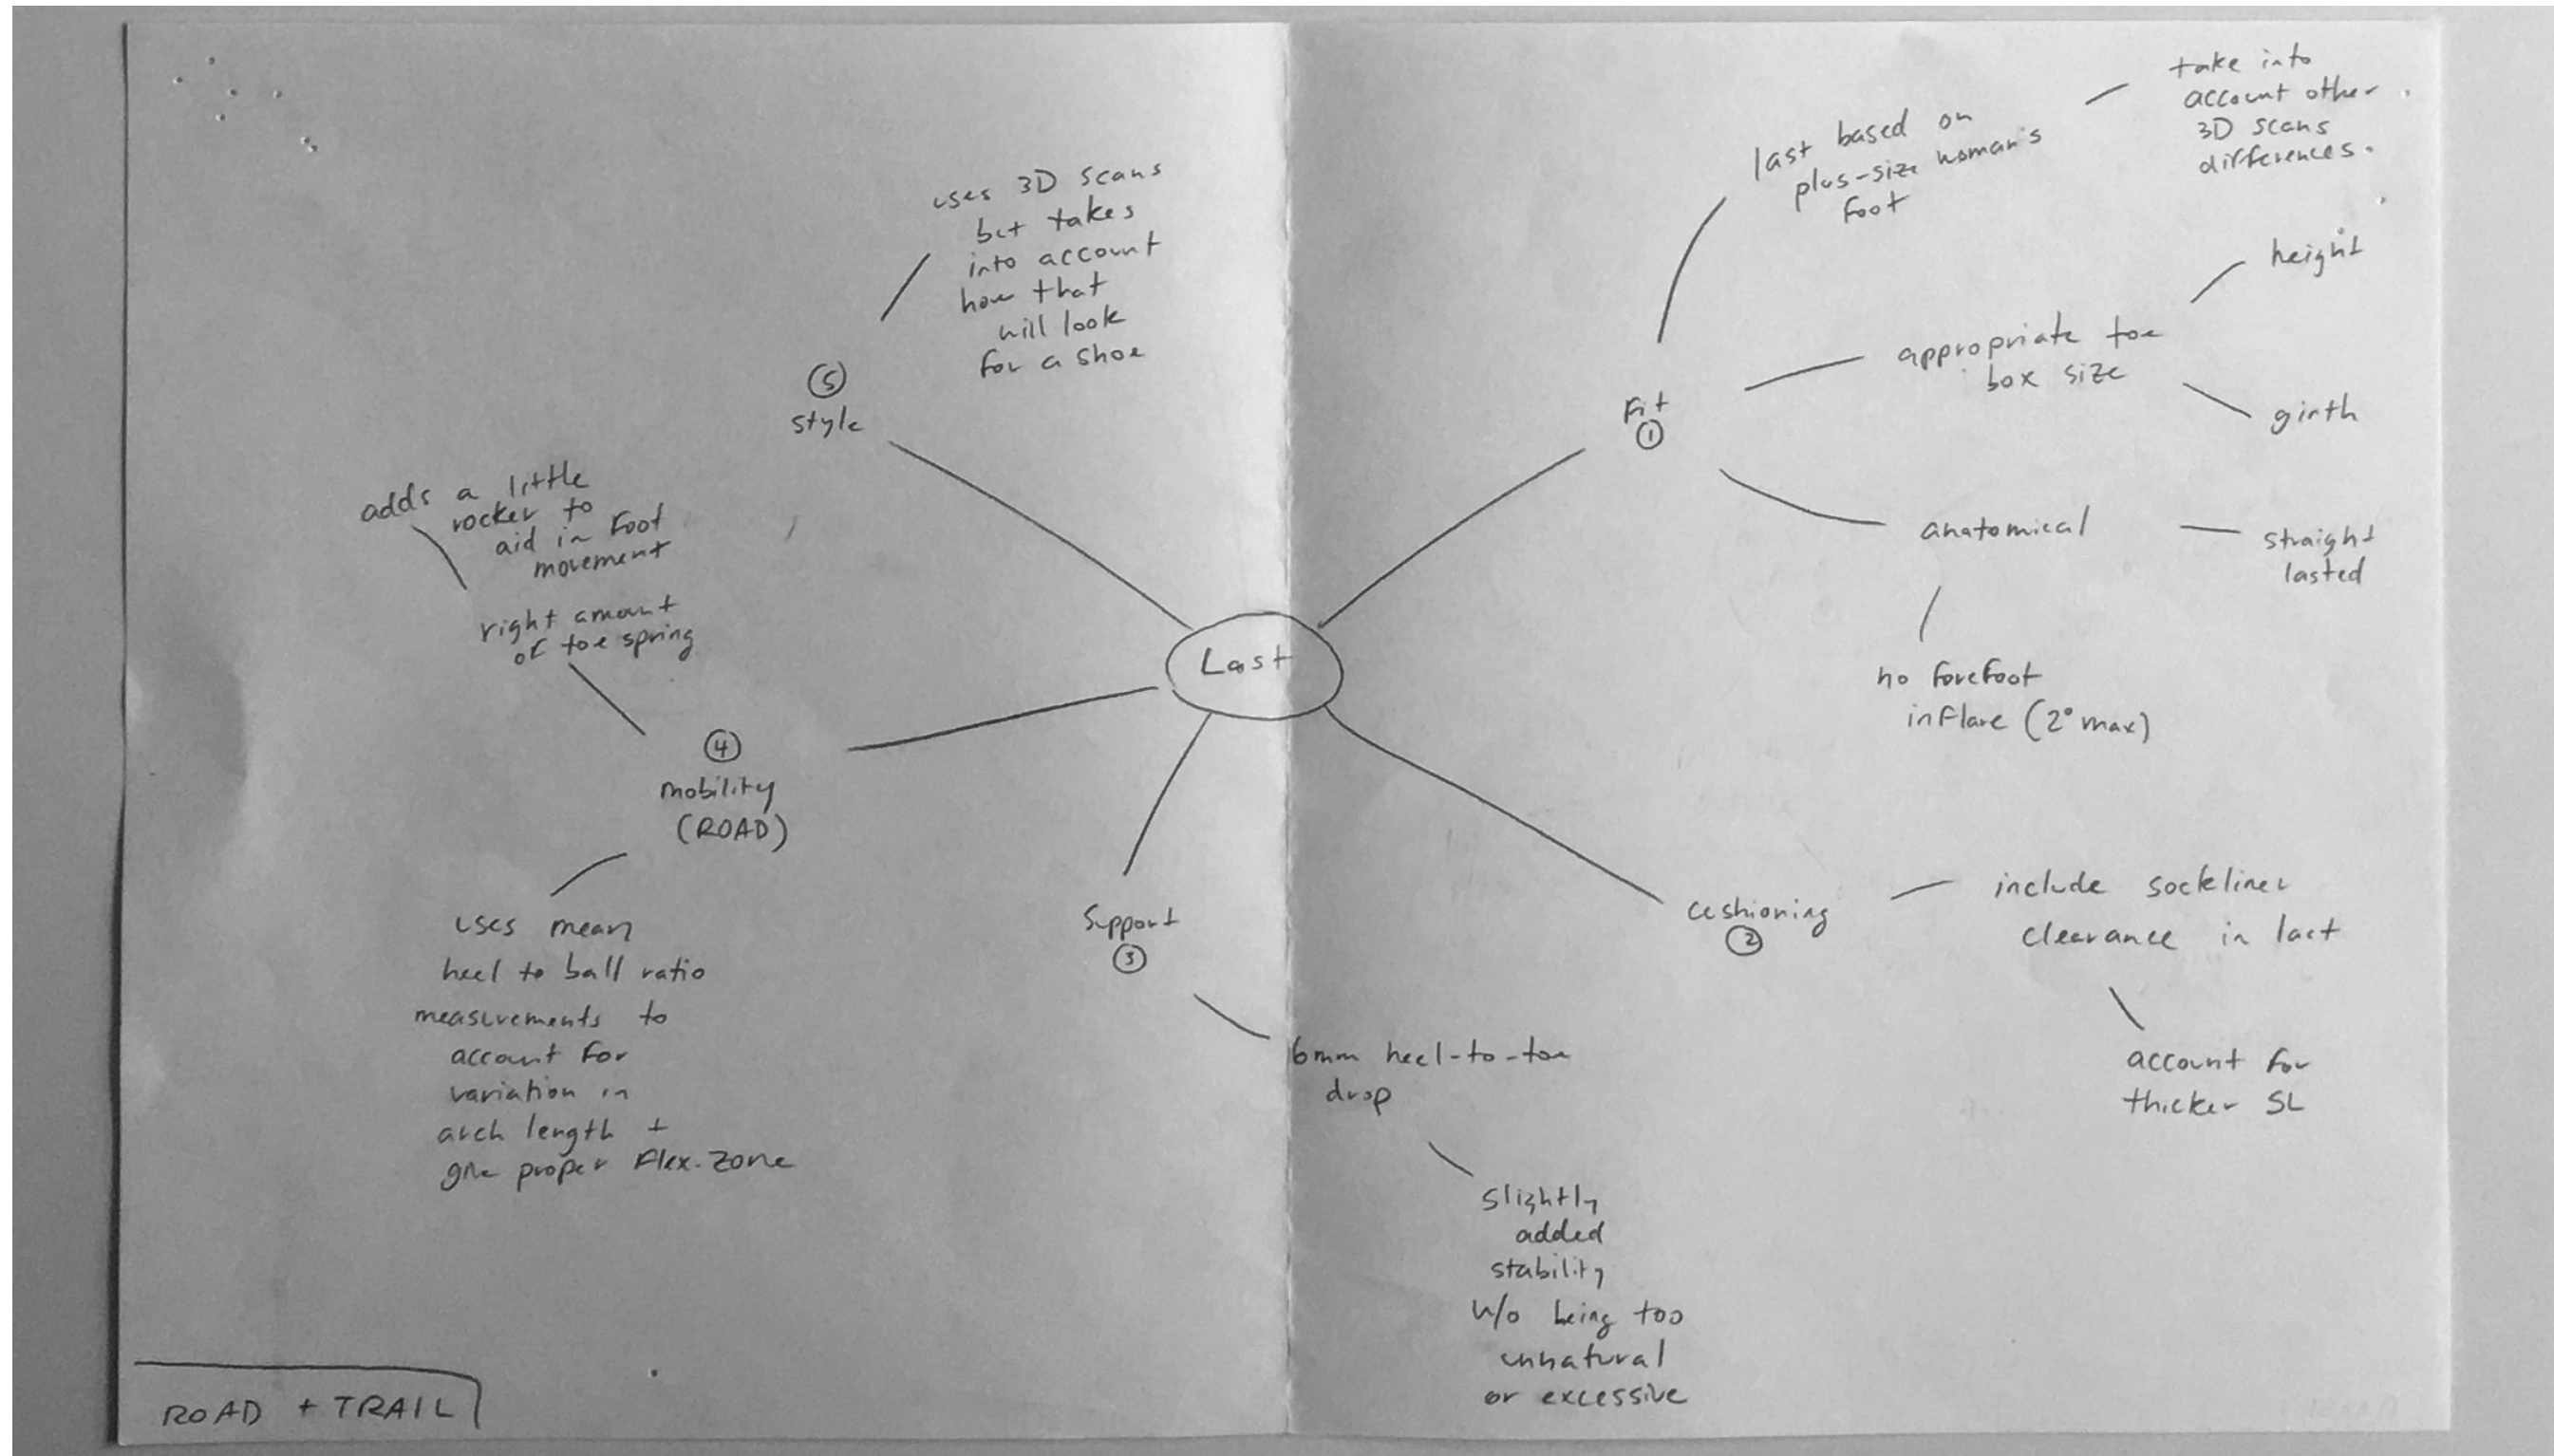 Last
Fit
①
last based on
plus-size woman's
foot
take into
account other
3D scans
differences.
appropriate toe
box size
height
girth
anatomical
straight
lasted
no forefoot
inflare (2° max)
cushioning
②
include sockliner
clearance in last
account for
thicker SL
Support
③
6mm heel-to-toe
drop
slightly
added
stability
w/o being too
unnatural
or excessive
④
mobility
(ROAD)
right amount
of toe spring
adds a little
rocker to
aid in foot
movement
uses mean
heel to ball ratio
measurements to
account for
variation in
arch length +
give proper flex-zone
⑤
style
uses 3D scans
but takes
into account
how that
will look
for a shoe
ROAD + TRAIL